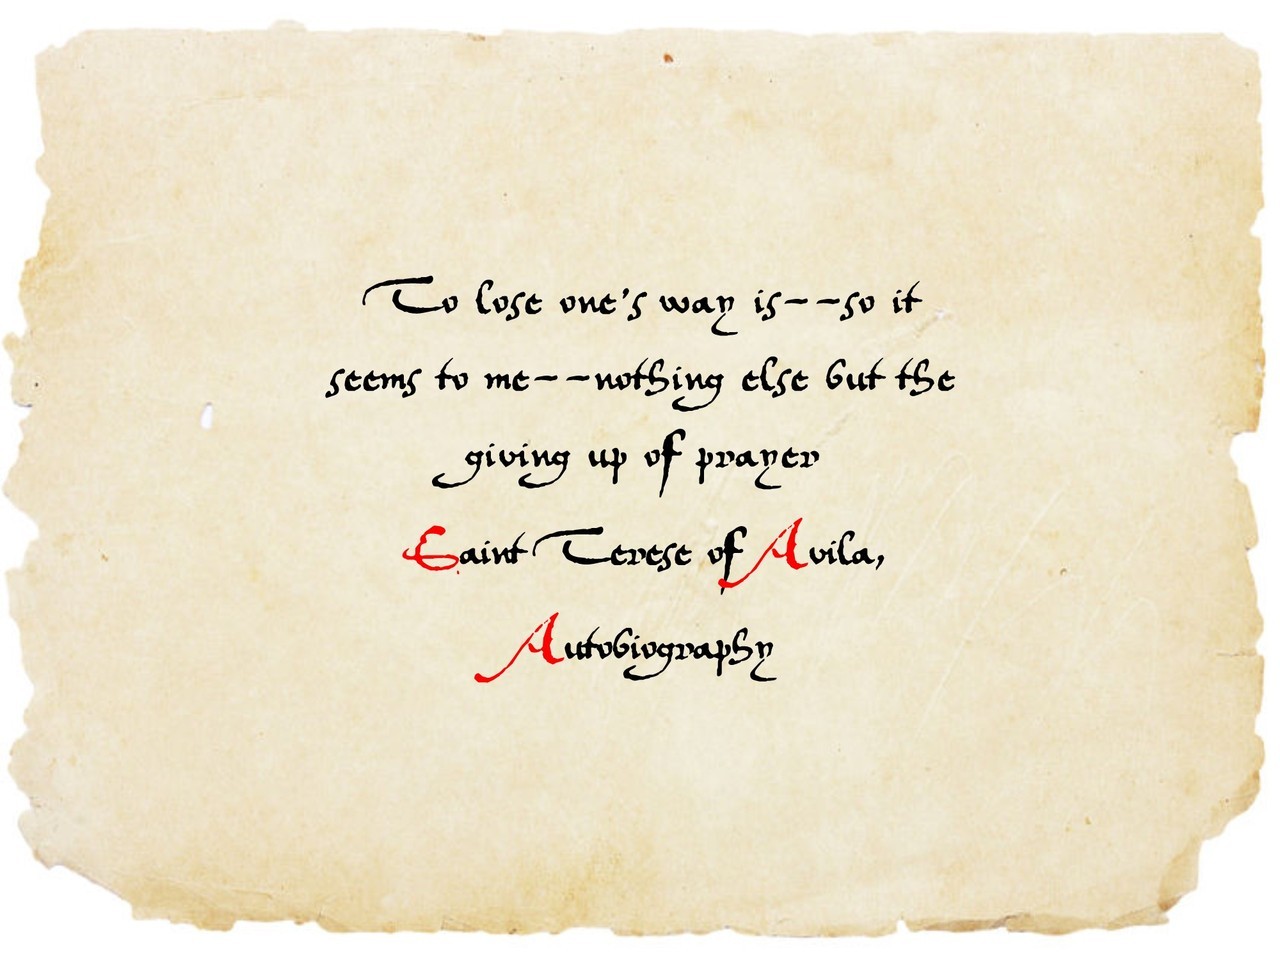 To lose one's way is--so it
seems to me--nothing else but the
giving up of prayer
Saint Terese of Avila,
Autobiography